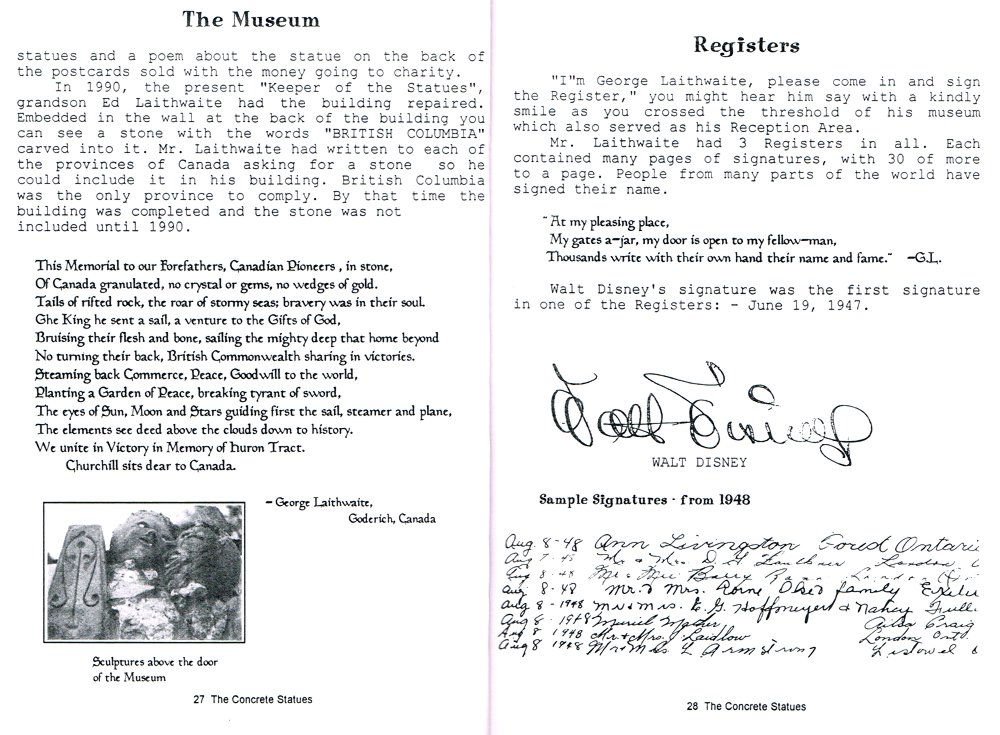 The Museum
statues and a poem about the statue on the back of
the postcards sold with the money going to charity.
In 1990, the present "Keeper of the Statues",
grandson Ed Laithwaite had the building repaired.
Embedded in the wall at the back of the building you
can see a stone with the words "BRITISH COLUMBIA"
carved into it. Mr. Laithwaite had written to each of
the provinces of Canada asking for a stone so he
could include it in his building. British Columbia
was the only province to comply. By that time the
building was completed and the stone was not
included until 1990.
This Memorial to our Forefathers, Canadian Pioneers , in stone,
Of Canada granulated, no crystal or gems, no wedges of gold.
Tails of rifted rock, the roar of stormy seas; bravery was in their soul.
Ghe King he sent a sail, a venture to the Gifts of God,
Bruising their flesh and bone, sailing the mighty deep that home beyond
No turning their back, British Commonwealth sharing in victories.
Steaming back Commerce, Peace, Goodwill to the world,
Planting a Garden of Peace, breaking tyrant of sword,
The eyes of Sun, Moon and Stars guiding first the sail, steamer and plane,
The elements see deed above the clouds down to history.
We unite in Victory in Memory of Huron Tract.
Churchill sits dear to Canada.
- George Laithwaite,
Goderich, Canada
Sculptures above the door
of the Museum
27 The Concrete Statues
Registers
"I"m George Laithwaite, please come in and sign
the Register," you might hear him say with a kindly
smile as you crossed the threshold of his museum
which also served as his Reception Area.
Mr. Laithwaite had 3 Registers in all. Each
contained many pages of signatures, with 30 of more
to a page. People from many parts of the world have
signed their name.
"At my pleasing place,
My gates a-jar, my door is open to my fellow-man,
Thousands write with their own hand their name and fame." -G.L.
Walt Disney's signature was the first signature
in one of the Registers: - June 19, 1947.
Walt Disney
WALT DISNEY
Sample Signatures - from 1948
Aug. 8-48 Ann Livingston Forest Ontario
Aug 7-48 Mr & Mrs. D. London
Aug 8-48 Mr & Mrs
Aug 8-48 Mr. & Mrs. family
Aug 8-1948 Mr & Mrs. E. G. Hoffmeyer & Nancy
Aug 8-1948 Muriel Ailsa Craig
Aug 8 1948 Mr & Mrs. J Laidlow London Ont.
Aug 8 1948 Mr & Mrs L Armstrong Listowel
28 The Concrete Statues